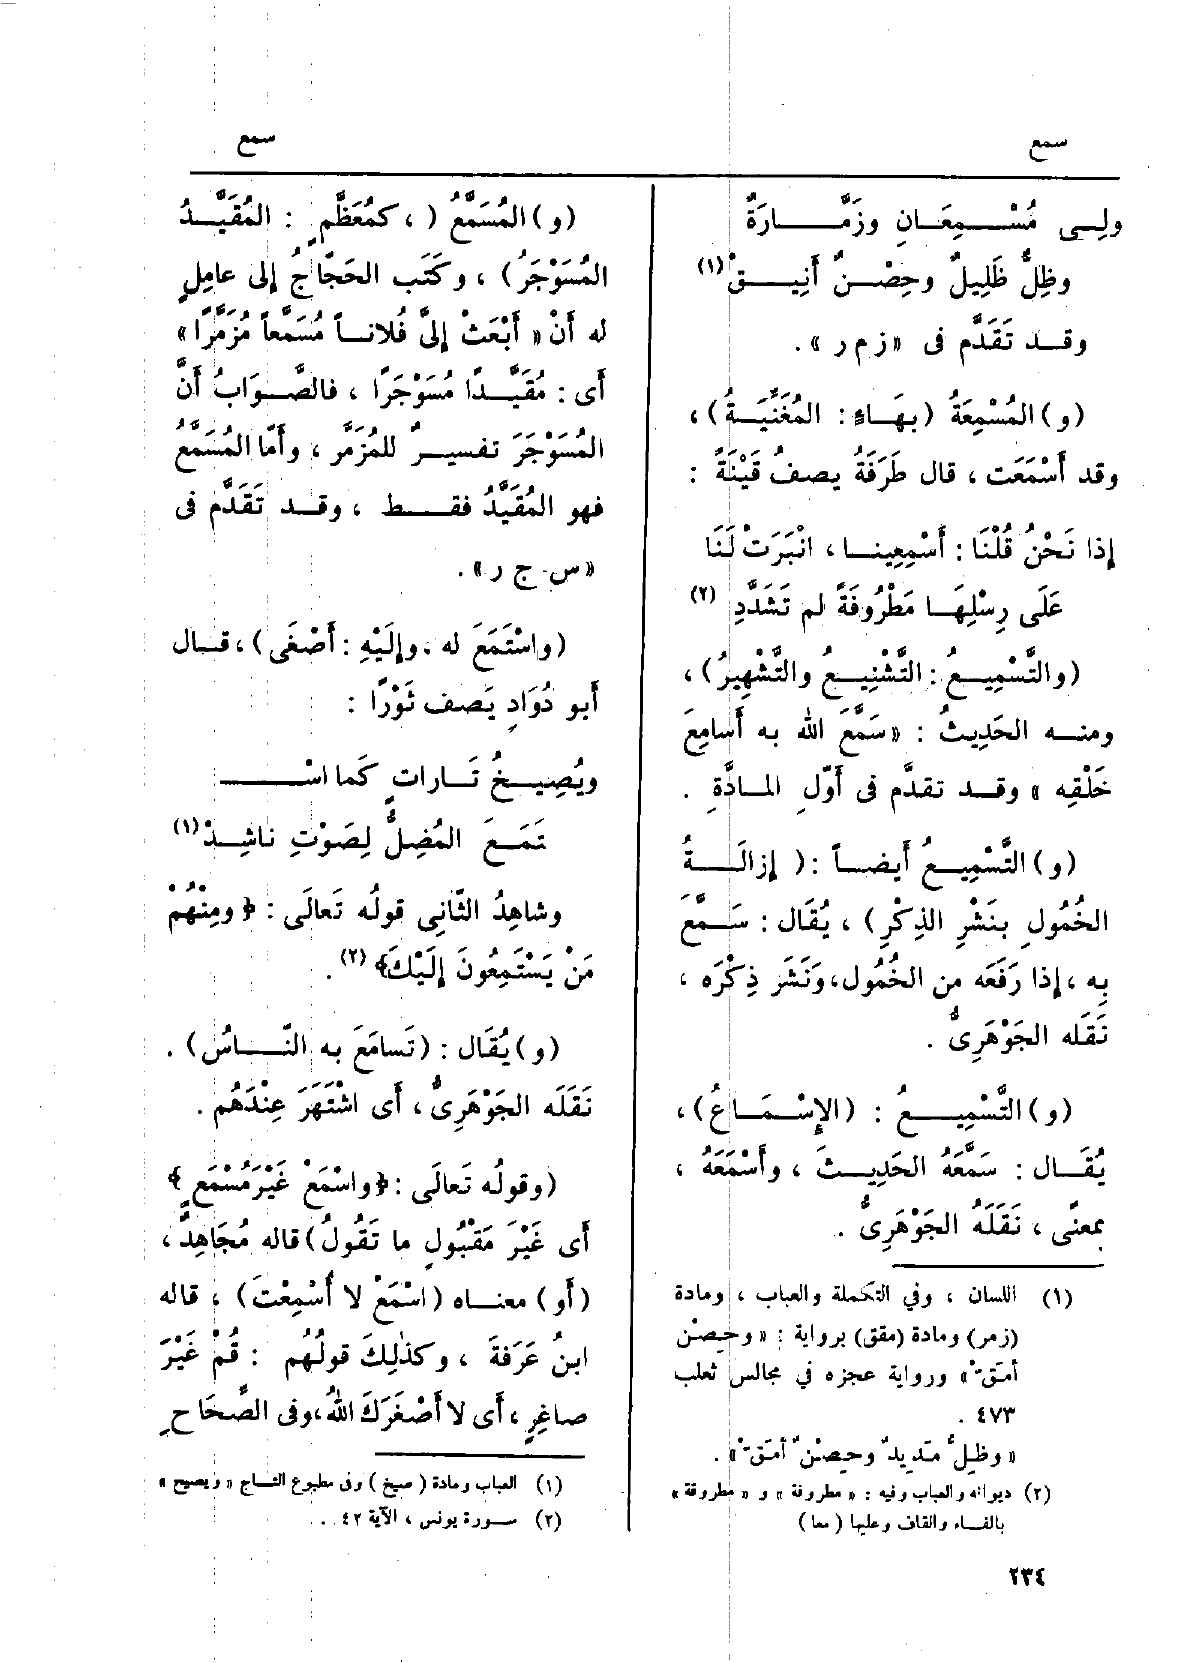 سمع
سمع
ولِــى مُسْـــمِعَـانِ وزَمَّـــارَةٌ
وظِلٌّ ظَلِيلٌ وحِصْـنٌ أَنِيــقْ (١)
وقـد تَقَدَّم فى «زم ر» .
(و) المُسْمِعَةُ (بهَـاءٍ: المُغَنِّيَـةُ) ،
وقد أَسْمَعَت ، قال طَرَفَةُ يصفُ قَيْنَةً :
إذا نَحْنُ قُلْنَا : أَسْمِعِينـا ، انْبَرَتْ لَنَا
عَلَى رِسْلِهَـا مَطْرُوفَةً لم تَشَدَّدِ (٢)
(والتَّسْمِيـعُ : التَّشْنِيـعُ والتَّشْهِيرُ) ،
ومنـه الحَدِيثُ : «سَمَّعَ الله به أَسامِعَ
خَلْقِه » وقـد تقدَّم فى أَوّلِ المـادَّةِ .
(و) التَّسْمِيـعُ أَيضـاً :( إزالَـةُ
الخُمُولِ بنَشْرِ الذِكْرِ) ، يُقَال : سَـمَّعَ
بِه ، إذا رَفَعَه من الخُمُول، ونَشَر ذِكْرَه ،
نَقَله الجَوْهَرِىُّ .
(و) التَّسْمِيــعُ : (الإِسْـمَـاعُ) ،
يُقَـال : سَمَّعَهُ الحَدِيـثَ ، وأَسْمَعَهُ ،
بمعنًى ، نَقَلَهُ الجَوْهَرِىُّ .
(١) اللسان ، وفي التكملة والعباب ، ومادة
(زمر) ومادة (مقق) برواية : «وحِصْن
أمَقّ» ورواية عجزه في مجالس ثعلب
٤٧٣ .
«وظلٌّ مَديدٌ وحصْنٌ أمَقّ» .
(٢) ديوانه والعباب وفيه : «مطروفة» و «مطروقة»
بالفـاء والقاف وعليها (معا)
(و) المُسَمَّعُ ( ، كمُعَظَّمٍ : المُقَيَّـدُ
المُسَوْجَرُ) ، وكَتَب الحَجّاجُ إلى عامِلٍ
له أَنْ « أَبْعَثْ إلىَّ فُلانـاً مُسَمَّعاً مُزَمَّرًا»
أَى : مُقَيَّـدًا مُسَوْجَرًا ، فالصَّـوَابُ أَنَّ
المُسَوْجَرَ تفسيـرٌ للمُزَمَّر ، وأَمّا المُسَمَّع
فهو المُقَيَّدُ فقـط ، وقـد تَقَدَّم فى
«س ج ر» .
(واسْتَمَعَ له ، وإلَيْهِ : أَصْغَى) ، قـال
أَبو دُوَادٍ يَصف ثَوْرًا :
ويُصِيـخُ تَـارات كَما اسْــ
تَمَـعَ المُضِلُّ لِصَوْتِ ناشِـدْ (١)
وشاهِدُ الثّانِى قولُه تَعالَى : ﴿ ومِنْهُمْ
مَنْ يَسْتَمِعُونَ إلَيْكَ﴾ (٢) .
(و) يُقَال : (تَسامَعَ به النّـاسُ) .
نَقَلَه الجَوْهَرِىُّ ، أَى اشْتَهَرَ عِنْدَهُم .
(وقولُه تَعالَى : ﴿واسْمَعْ غَيْرَ مُسْمَعٍ﴾
أَى غَيْرَ مَقْبُولٍ ما تَقُولُ) قاله مُجَاهِدٌ ،
(أَو) معنـاه (اسْمَعْ لا أُسْمِعْتَ) ، قاله
ابنُ عَرَفَةَ ، وكذٰلِكَ قولُهُم : قُمْ غَيْرَ
صاغِرٍ ، أَى لا أَصْغَرَكَ اللهُ، وفى الصّحَاحِ
(١) العباب ومادة (صيخ) وفى مطبوع التـاج «ويصيح»
(٢) سـورة يونس ، الآية ٤٢ .
٢٣٤